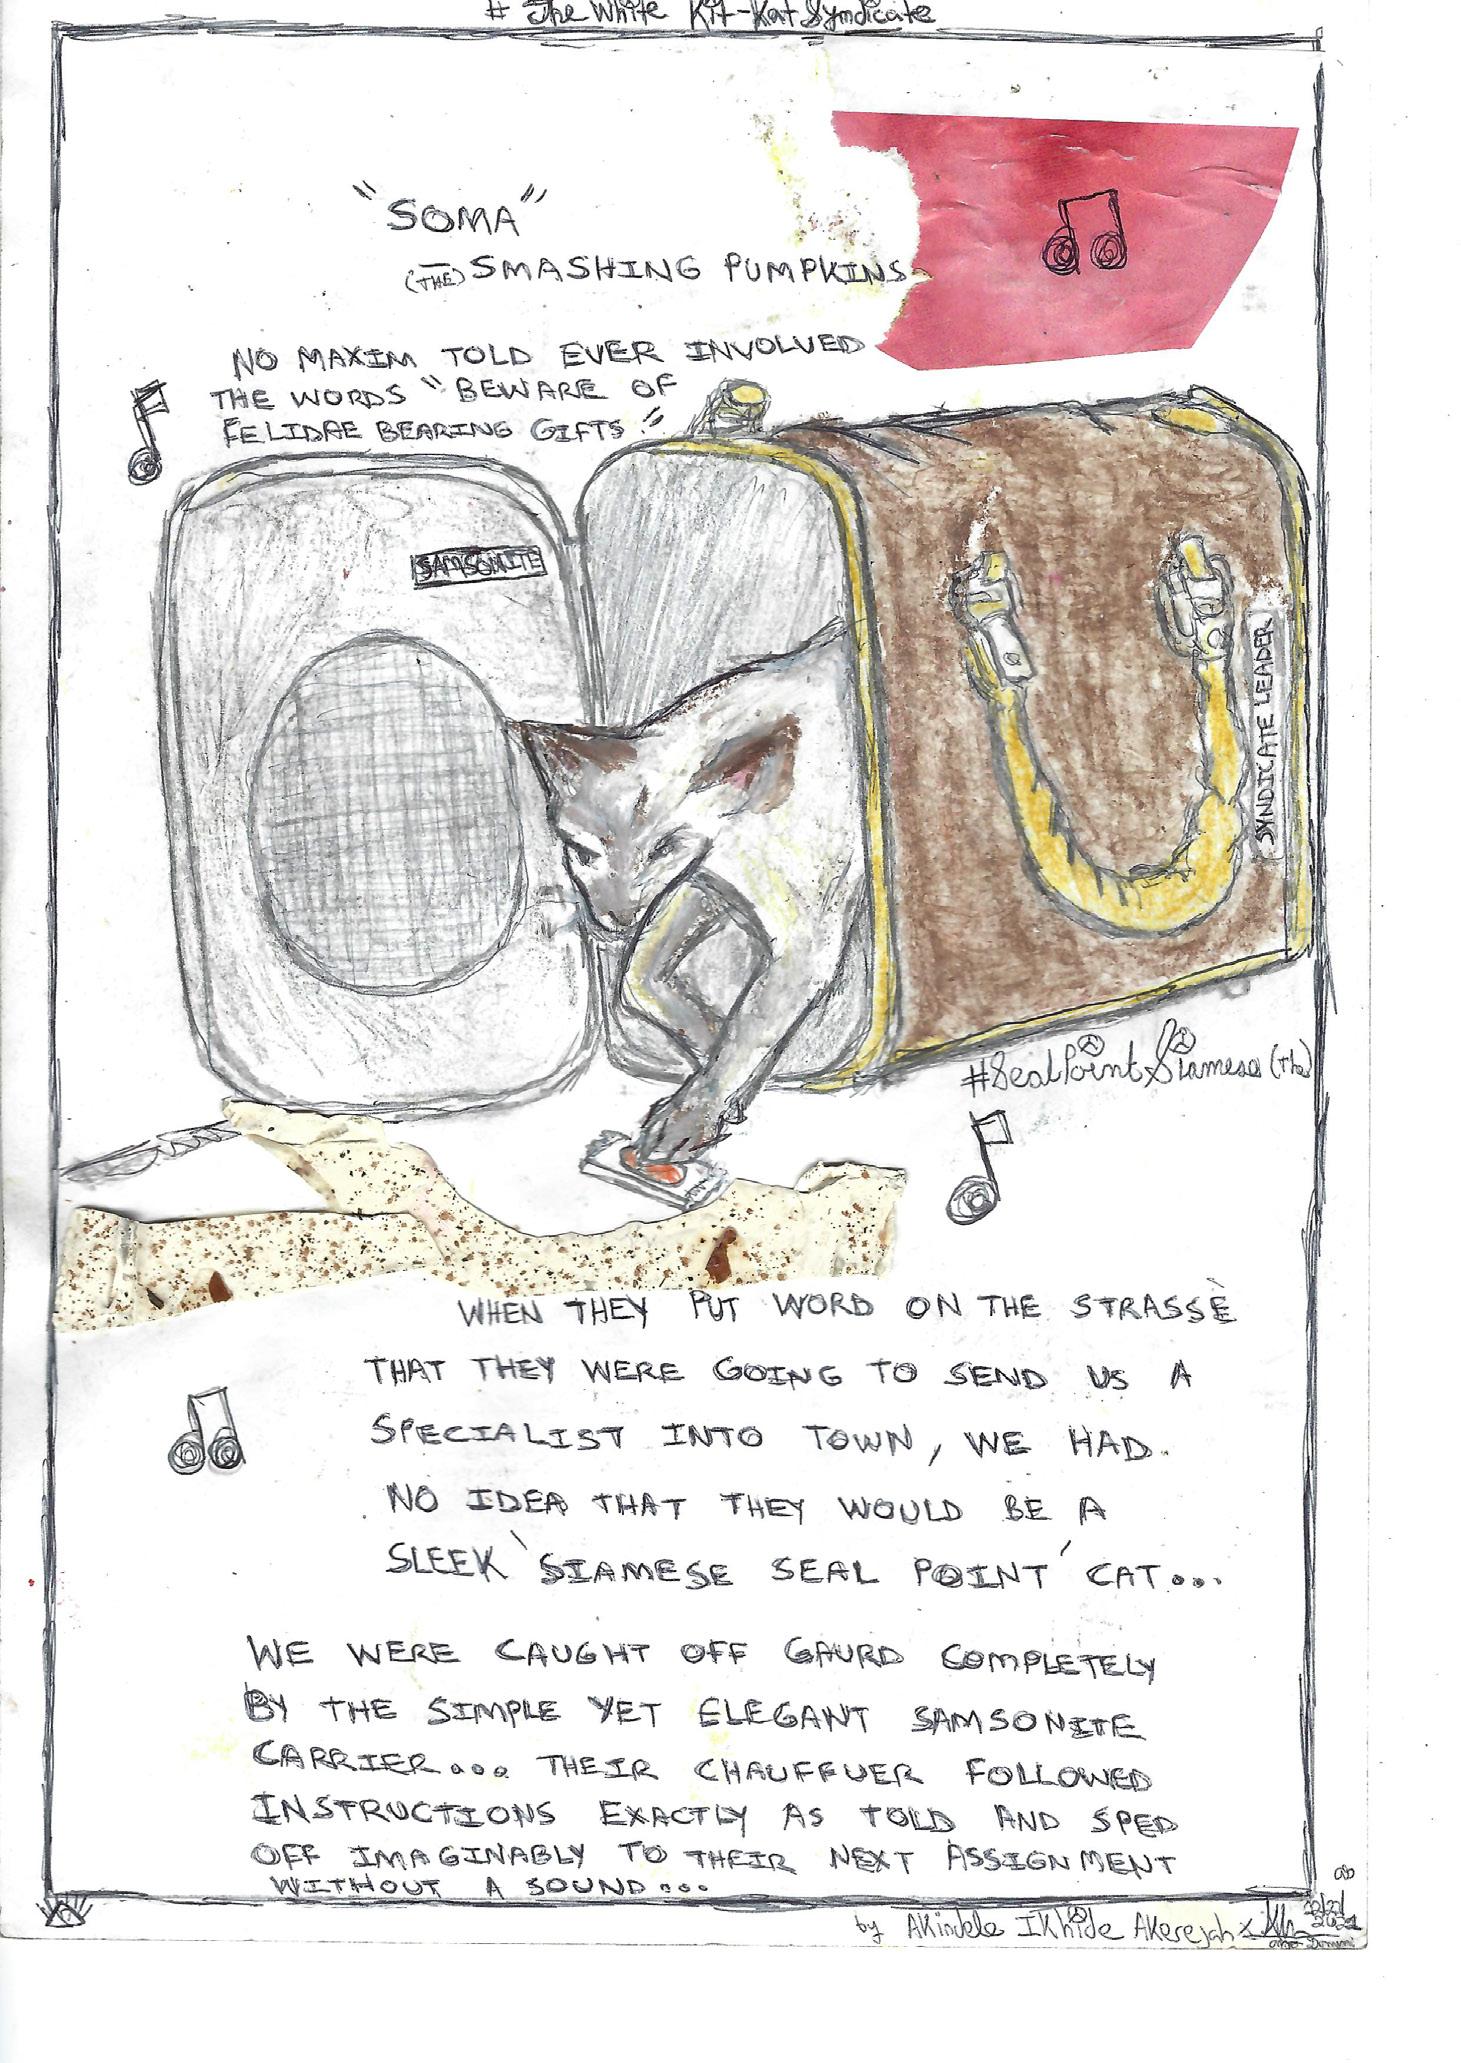 # The White Kit-Kat Syndicate
"SOMA"
(THE) SMASHING PUMPKINS
NO MAXIM TOLD EVER INVOLVED
THE WORDS "BEWARE OF
FELIDAE BEARING GIFTS."
SAMSONITE
SYNDICATE LEADER
#SealPointSiamese (The)
WHEN THEY PUT WORD ON THE STRASSÈ
THAT THEY WERE GOING TO SEND US A
SPECIALIST INTO TOWN, WE HAD
NO IDEA THAT THEY WOULD BE A
SLEEK 'SIAMESE SEAL POINT' CAT...
WE WERE CAUGHT OFF GAURD COMPLETELY
BY THE SIMPLE YET ELEGANT SAMSONITE
CARRIER... THEIR CHAUFFUER FOLLOWED
INSTRUCTIONS EXACTLY AS TOLD AND SPED
OFF IMAGINABLY TO THEIR NEXT ASSIGNMENT
WITHOUT A SOUND...
by Akindele Ikhide Akerejah